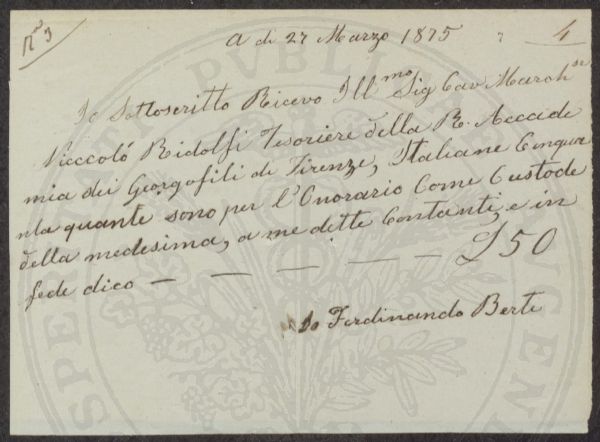 Nº 3
4
A di 27 Marzo 1875
Io Sottoscritto Ricevo Ill.mo Sig Cav March.se
Niccoló Ridolfi Tesoriere della R. Accade
mia dei Georgofili di Firenze, Italiane Cinqua
nta quante sono per l'Onorario Come Custode
della medesima, a me dette Contanti, e in
fede dico — — — — — £ 50
Io Ferdinando Berti